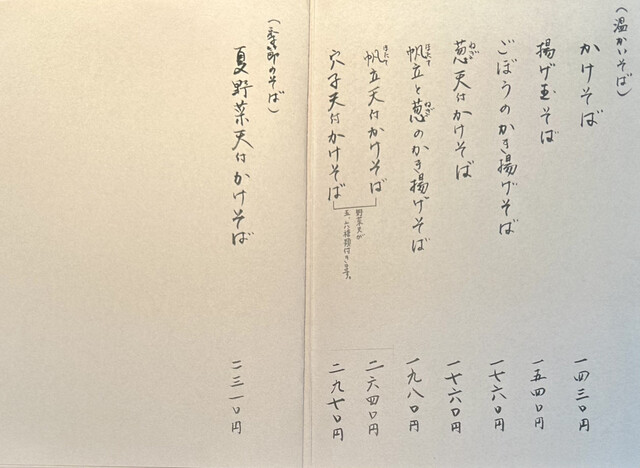 (温かいそば)
かけそば 一四三〇円
揚げ玉そば 一五四〇円
ごぼうのかき揚げそば 一七六〇円
葱天付かけそば 一七六〇円
帆立と葱のかき揚げそば 一九八〇円
帆立天付かけそば 二六四〇円
穴子天付かけそば 二九七〇円
野菜天が
五、六種類付きます。
(季節のそば)
夏野菜天付かけそば 二三一〇円